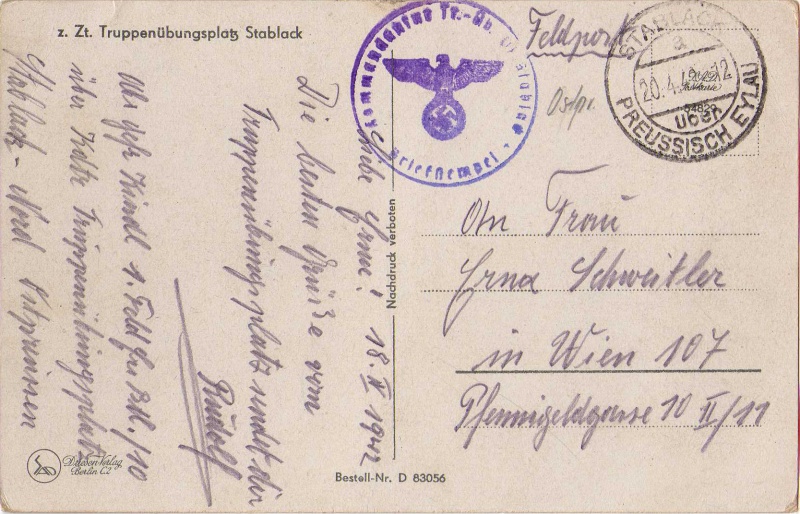 z. Zt. Truppenübungsplatz Stablack
Liebe Erna! 18. IV 1942
Die besten Grüße vom
Truppenübungsplatz sendet dir
Rudolf
Kindl 1. Feld
über Truppenübungsplatz
Stablack-Nord Ostpreussen
Kommandantur Tr.-Üb.
Briefstempel
Feldpost
Ostpr.
STABLACK
a
20.4.42-12
über
PREUSSISCH EYLAU
An Frau
Erna
in Wien 107
Pfennigeldgasse 10 II/11
Nachdruck verboten
Driesen-Verlag
Berlin C2
Bestell-Nr. D 83056